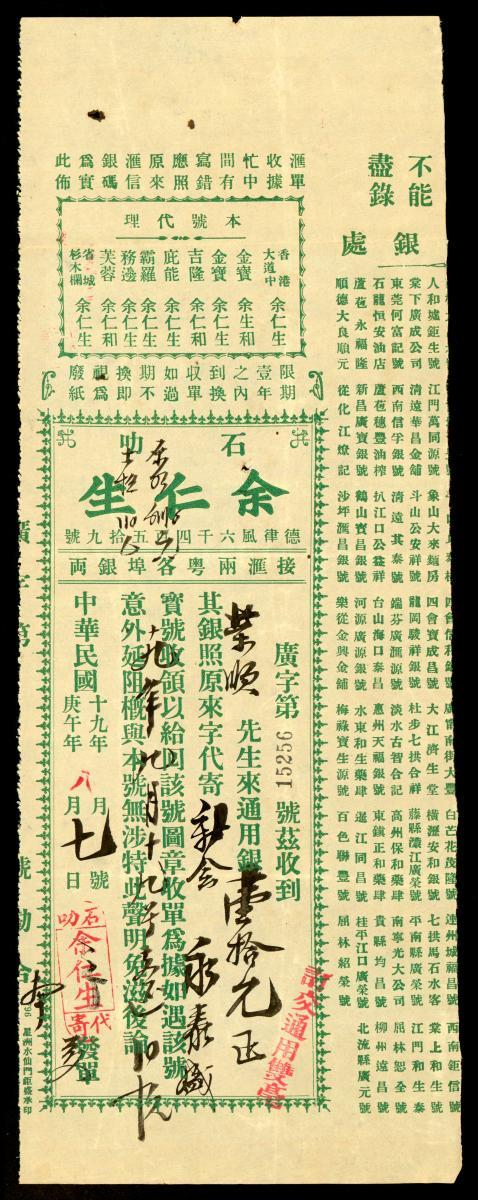 不能盡錄
銀處
匯單收據忙中間有寫錯應照原來匯信銀碼爲實此佈
本號代理
香港大道中 余仁生
金寶 余生和
金寶 余仁生
吉隆 余仁和
庇能 余仁生
霸羅 余仁和
務邊 余仁生
芙蓉 余仁和
省城杉木欄 余仁生
限期壹年之內到換收單如過期不換即視爲廢紙
石叻
余仁生
德律風六千四百五十九號
接滙兩粵各埠銀両
廣字第15256號茲收到
榮順先生來通用銀壹拾元正
其銀照原來字代寄新会永泰盛
寶號收領以給回該號圖章收單爲據如遇該號
意外延阻概與本號無涉特此聲明免滋後論
中華民國十九年庚午年八月七日
號
發單
石叻余仁生代寄
訂交通用雙毫
人和墟鉅生號 江門萬同源號 象山大來麵房 四會寶成號 大江濟生堂
棠下廣成公司 清遠華昌金舖 斗山公安祥號 龍岡駿祥銀號 杜步七拱合祥 藤縣濃江廣榮號 平南縣廣榮號 江門和生泰
東莞何富記號 西南信孚銀號 清遠其泰號 端芬廣滙源號 淡水古智合記 高州保和藥肆 南寧光大公司 屈林恕全號
石龍恒安油店 蘆苞穗豐油榨 扒江口公益祥 台山海口泰昌 惠州天福銀號 東鎮正和藥肆 貴縣均昌號 柳州遠昌號
蘆苞永福隆 新昌廣寶銀號 鶴山寶昌銀號 河源廣興銀號 水東和生藥肆 邏江同昌號 桂平江口廣榮號 北流縣廣元號
順德大良順元 從化江燎記 沙坪匯昌銀號 樂從金興金舖 梅祿寶生源號 百色聯豐號 屈林紹榮號
白芒花茂隆號 連州城福昌號 西南鉅信號
橫瀝安和銀號 七拱馬石水客 棠上和生號
星洲水仙門鉅盛承印